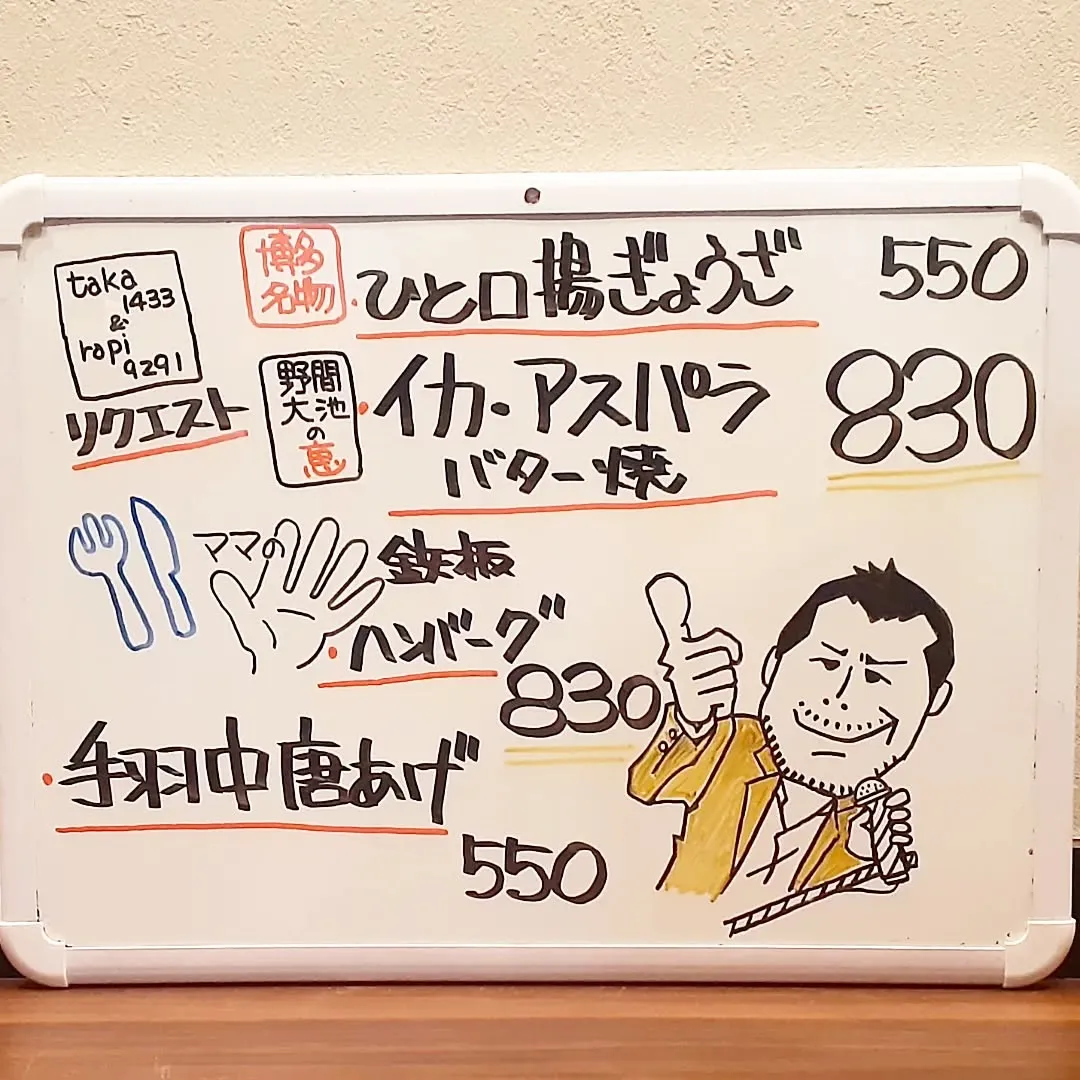 taka
1433
&
rapi
9291
リクエスト
博多
名物
・ひと口揚ぎょうざ 550
野間
大池
の
恵
・イカ・アスパラ 830
バター焼
ママの
鉄板
・ハンバーグ
830
・手羽中唐あげ
550